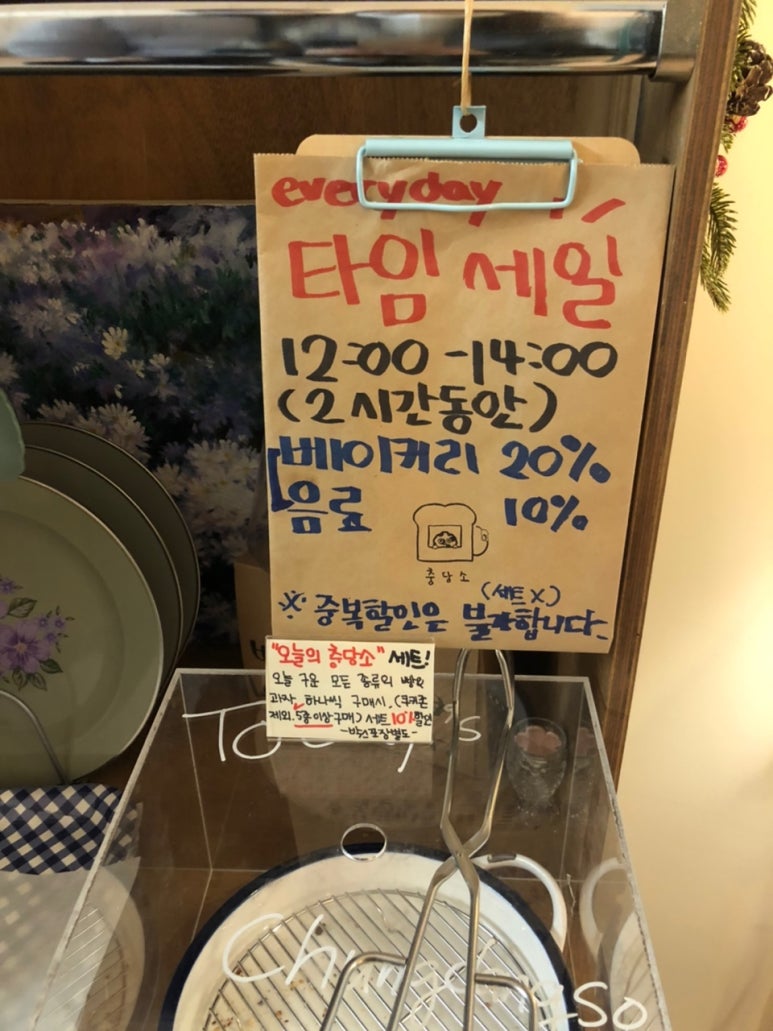 everyday
타임 세일
12:00-14:00
(2시간동안)
베이커리 20%
음료 10%
충당소
(세트 X)
※ 중복할인은 불가합니다.
"오늘의 충당소" 세트!
오늘 구운 모든 종류의 빵와
과자 하나씩 구매시, (쿠키존
제외, 5종 이상 구매) 세트 10% 할인
-박스포장별도-
Today's
Chungdangso